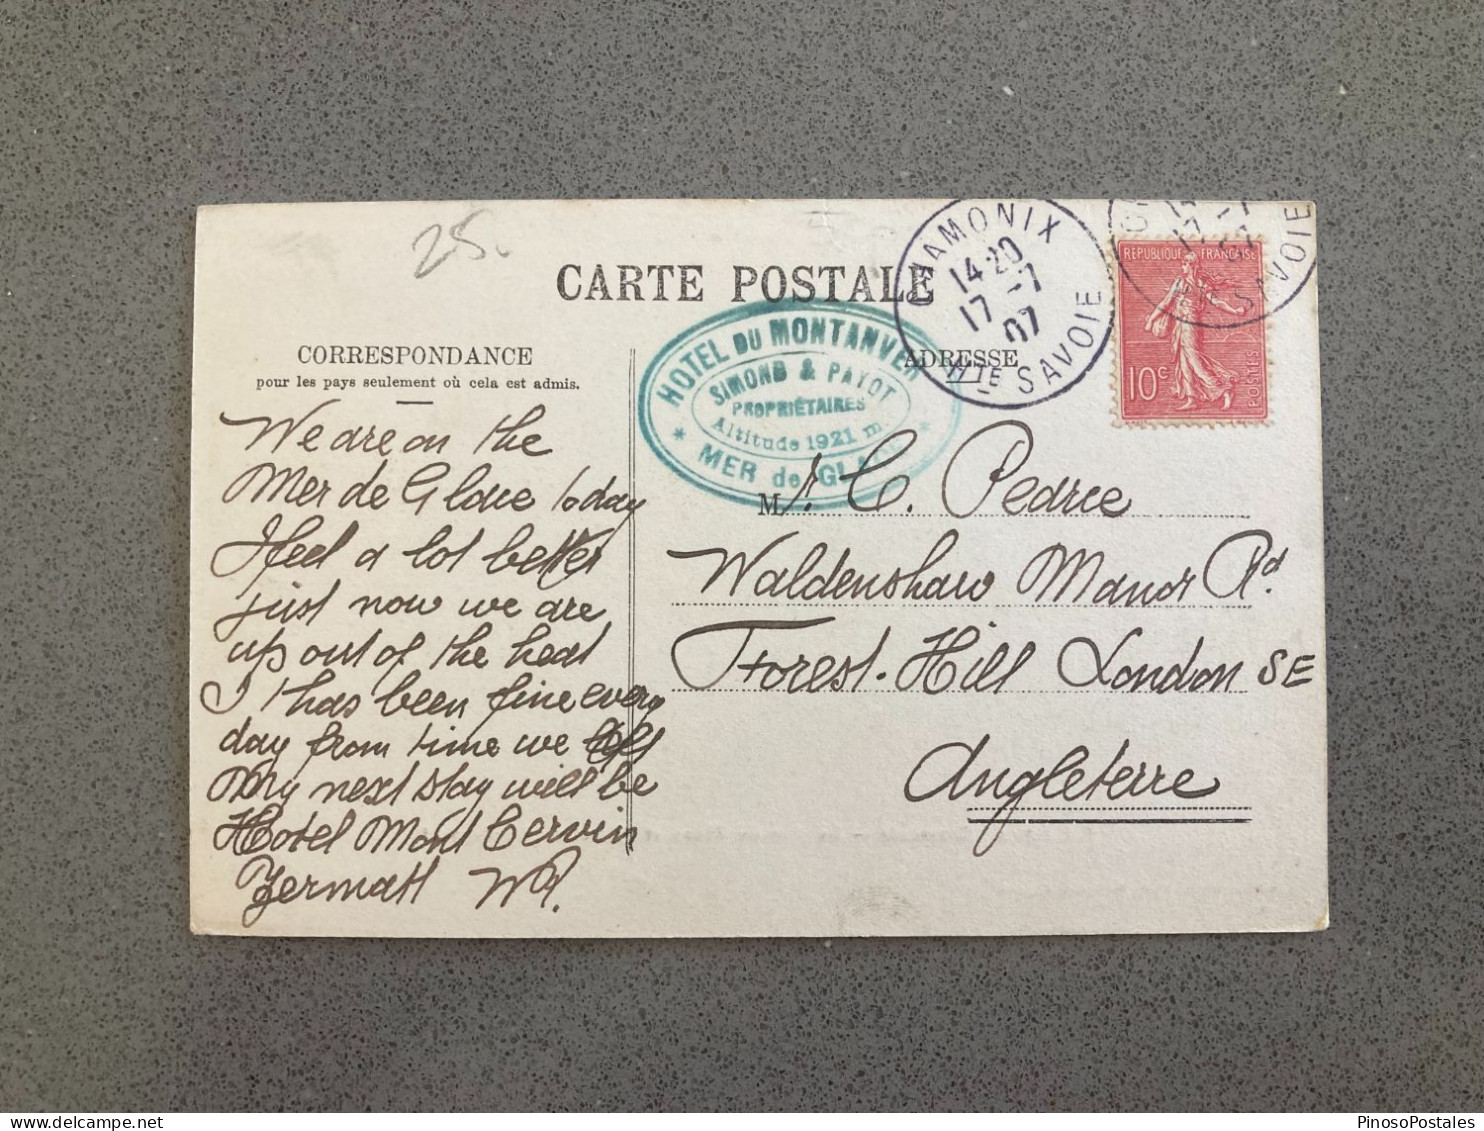 25.
CARTE POSTALE
CORRESPONDANCE
pour les pays seulement où cela est admis.
ADRESSE
HOTEL DU MONTANVERT
SIMOND & PAYOT
PROPRIÉTAIRES
Altitude 1921 m.
* MER de GLACE *
CHAMONIX
14 20
17 -7
07
HTE SAVOIE
17 -7
07
SAVOIE
REPUBLIQUE FRANCAISE
10c
POSTES
We are on the
Mer de Glace today
I feel a lot better
just now we are
up out of the heat
It has been fine every
day from time we left
My next stay will be
Hotel Mont Cervin
Zermatt WP.
Mr. C. Pearce
Waldenshaw Manor Rd
Forest-Hill London SE
Angleterre
PinosoPostales